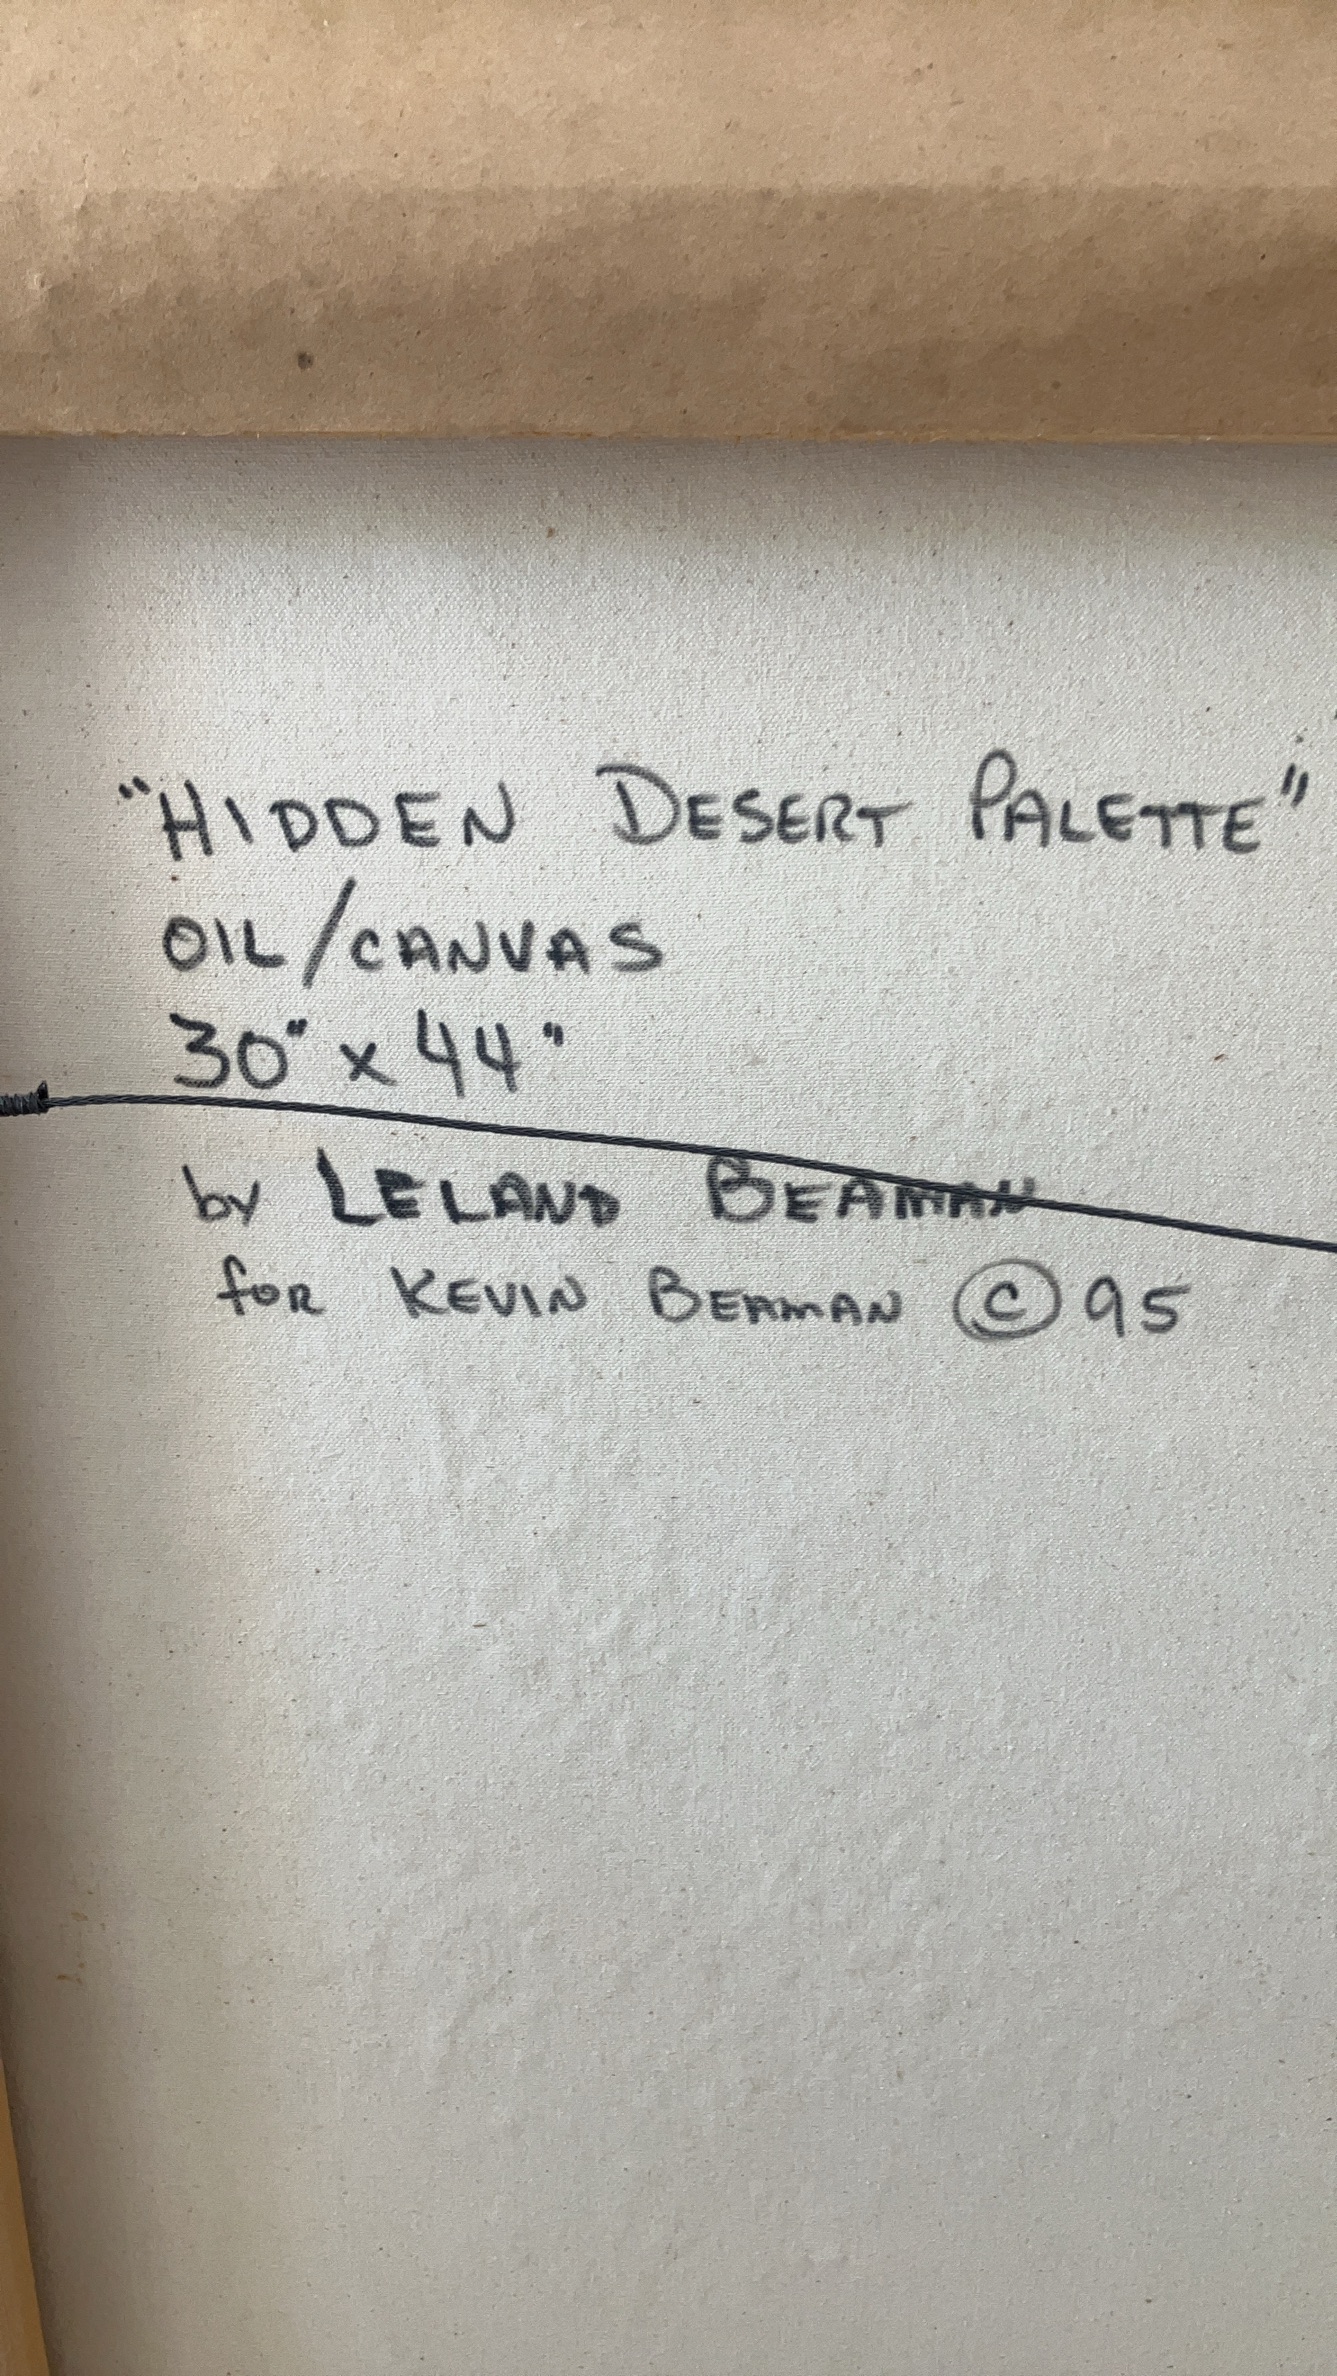 "HIDDEN DESERT PALETTE"
OIL/CANVAS
30" x 44"
by LELAND BEAMAN
for KEVIN BEAMAN © 95